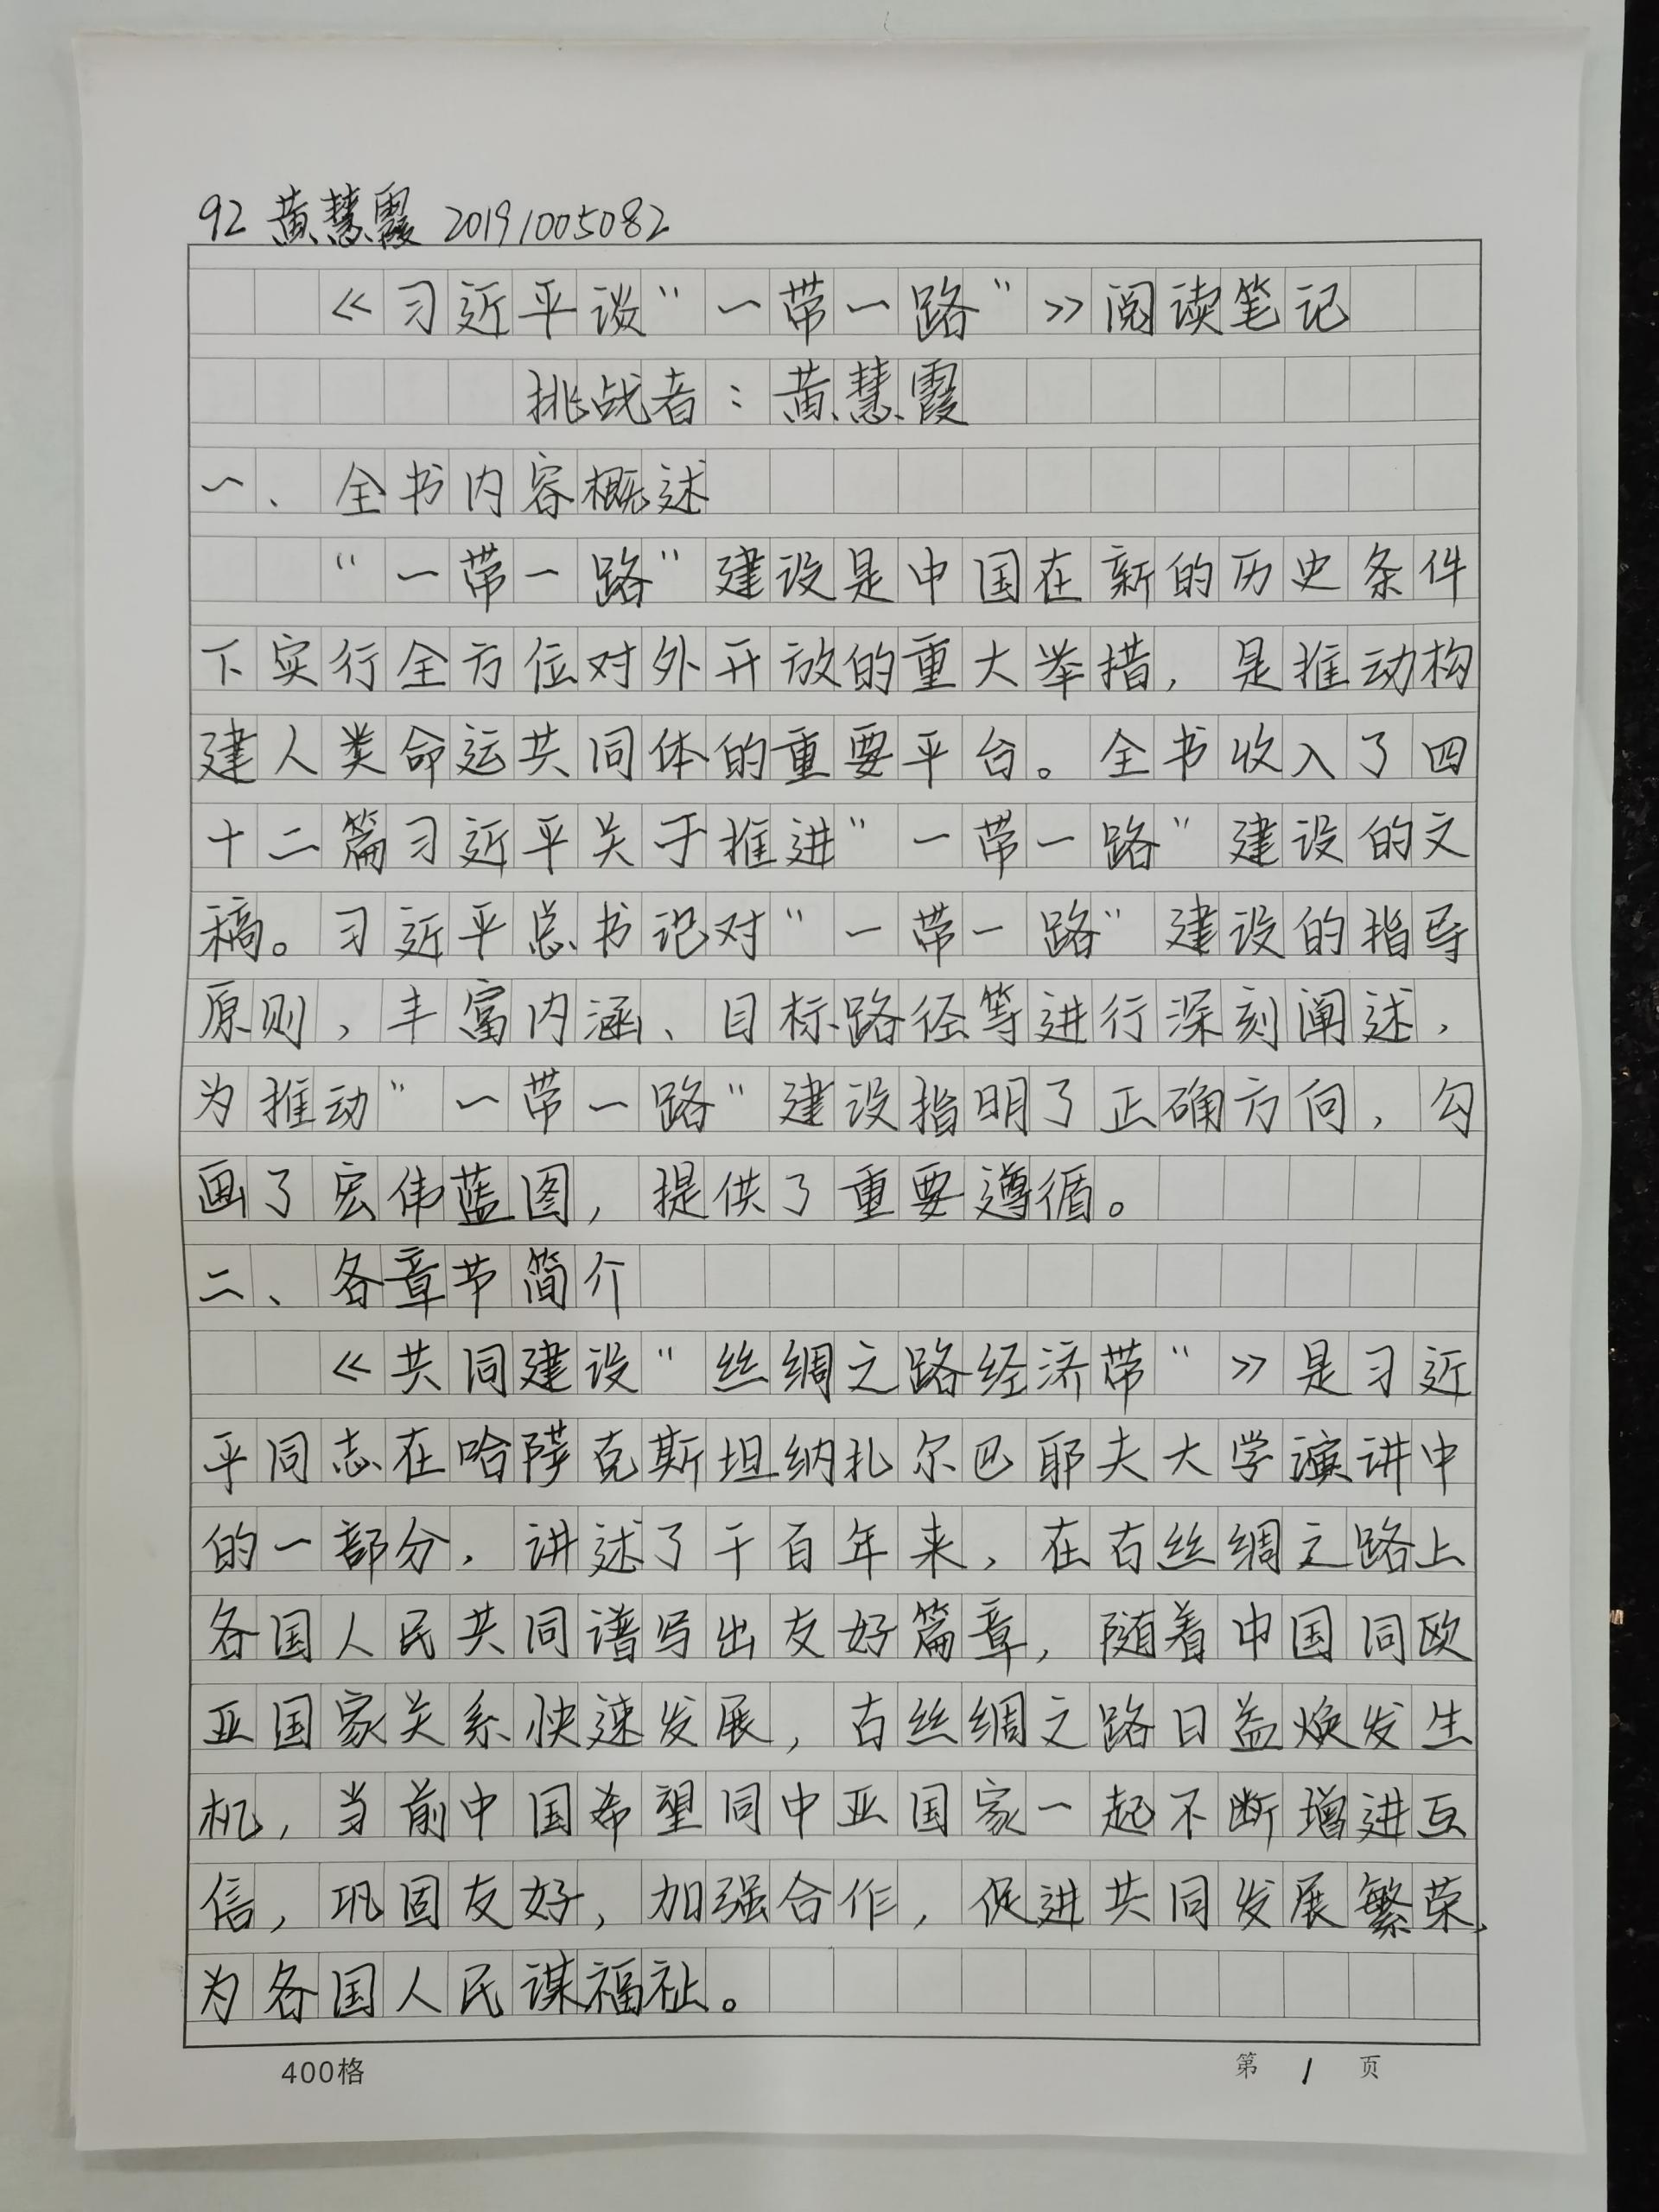 92 黄慧霞 20191005082
《习近平谈“一带一路”》阅读笔记
挑战者：黄慧霞
一、全书内容概述
“一带一路”建设是中国在新的历史条件
下实行全方位对外开放的重大举措，是推动构
建人类命运共同体的重要平台。全书收入了四
十二篇习近平关于推进“一带一路”建设的文
稿。习近平总书记对“一带一路”建设的指导
原则，丰富内涵、目标路径等进行深刻阐述，
为推动“一带一路”建设指明了正确方向，勾
画了宏伟蓝图，提供了重要遵循。
二、各章节简介
《共同建设“丝绸之路经济带”》是习近
平同志在哈萨克斯坦纳扎尔巴耶夫大学演讲中
的一部分，讲述了千百年来，在古丝绸之路上
各国人民共同谱写出友好篇章，随着中国同欧
亚国家关系快速发展，古丝绸之路日益焕发生
机，当前中国希望同中亚国家一起不断增进互
信，巩固友好，加强合作，促进共同发展繁荣，
为各国人民谋福祉。
400格 第 1 页